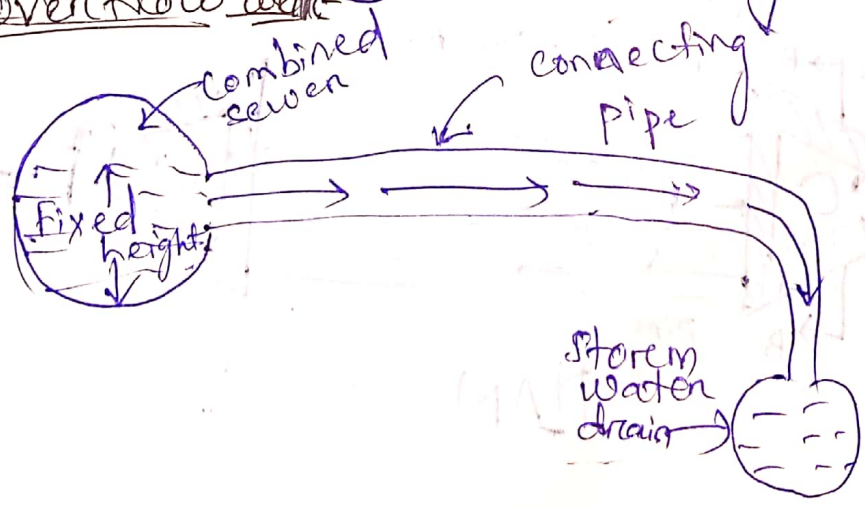 Overflow weir
combined
sewer
connecting
pipe
Fixed
height
Storem
water
drain